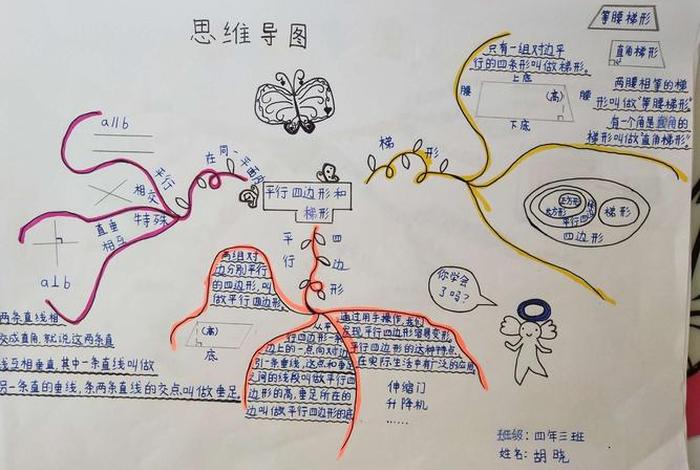 思维导图
等腰梯形
直角梯形
只有一组对边平
行的四条形叫做梯形。
上底
腰
(高)
腰
下底
两腰相等的梯
形叫做"等腰梯形"
有一个角是直角的
梯形叫做"直角梯形"
a∥b
平行
相交
在同一平面内
特殊
互相垂直
a⊥b
平行四边形和
梯形
梯形
平行四边形
梯形
四边形
两组对
边分别平行
的四边形,叫
做平行四边形。
(高)
底
你学会
了吗?
两条直线相
交成直角,就说这两条直
线互相垂直,其中一条直线叫做
另一条直的垂线,条两条直线的交点,叫做垂足。
从平
行四边形一条
边上的一点向对边
引一条垂线,这点和垂足
之间的线段叫做平行四
边形的高,垂足所在的
边叫做平行四边形的底
通过用手操作,我们
发现平行四边形容易变形。
平行四边形的这种特点,
在实际生活中有广泛的应用
伸缩门
升降机
……
班级:四年三班
姓名:胡晓